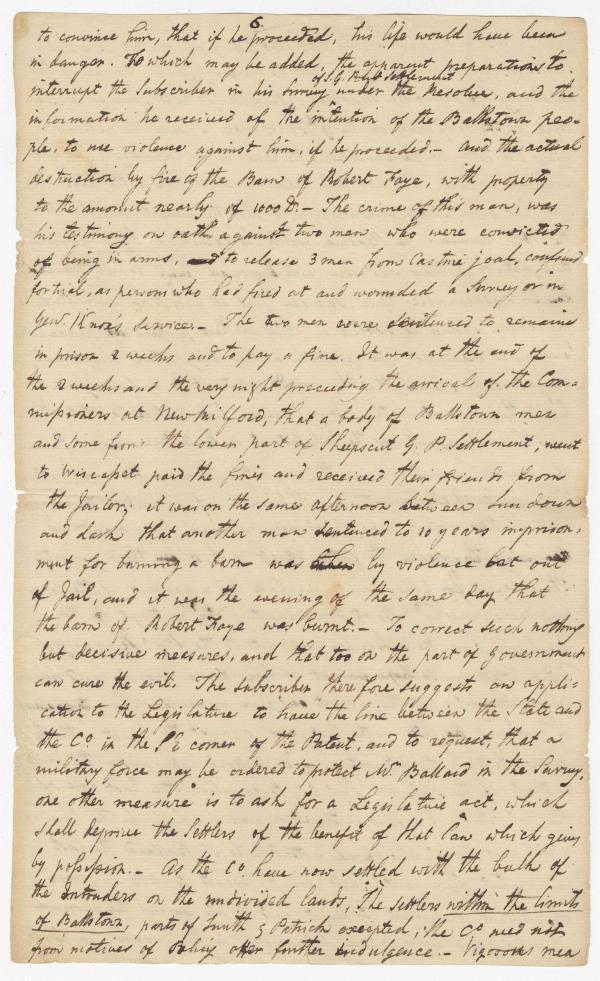 6.
to convince him, that if he proceeded, his life would have been
in danger. To which may be added, the apparent preparations to
of S. G. Settlement
interrupt the Subscriber in his Survey under the Resolve, and the
information he received of the intention of the Ballstown peo-
ple, to use violence against him, if he proceeded.- and the actual
destruction by fire of the Barn of Robert Faye, with property
to the amount nearly of 1000 Ds.- The crime of this man, was
his testimony on oath against two men who were convicted
of being in arms, to release 3 men from Castine joal, confined
for trial, as persons who had fired at and wounded a Surveyor in
Genl. Knox's service.- The two men were sentenced to remain
in prison 2 weeks and to pay a fine. It was at the end of
the 2 weeks and the very night preceeding the arrival of the Com=
missioners at New Milford, that a body of Ballstown men
and some from the lower part of Sheepscut G. P. Settlement, went
to Wiscasset paid the fines and received their friends from
the Jailor; it was on the same afternoon between sun down
and dark that another man sentenced to 10 years imprison,
ment for burning a barn was taken by violence out
of Jail, and it was the evening of the same day that
the barn of Robert Faye was burnt.- To correct such nothing
but decisive measures, and that too on the part of Government
can cure the evil. The subscriber therefore suggests an appli=
cation to the Legislature to have the line between the State and
the Co. in the SE corner of the Patent, and to request, that a
military force may be ordered to protect Mr. Ballard in the Survey.
one other measure is to ask for a Legislative act, which
shall deprive the Settlers of the benefit of that Law which given
by possession.- As the Co. have now settled with the bulk of
the Intruders on the undivided lands, The Settlers within the limits
of Ballstown, parts of Smith & Patrick excepted; the Co. need not
from motives of Policy offer further indulgence.- Vigorous mea